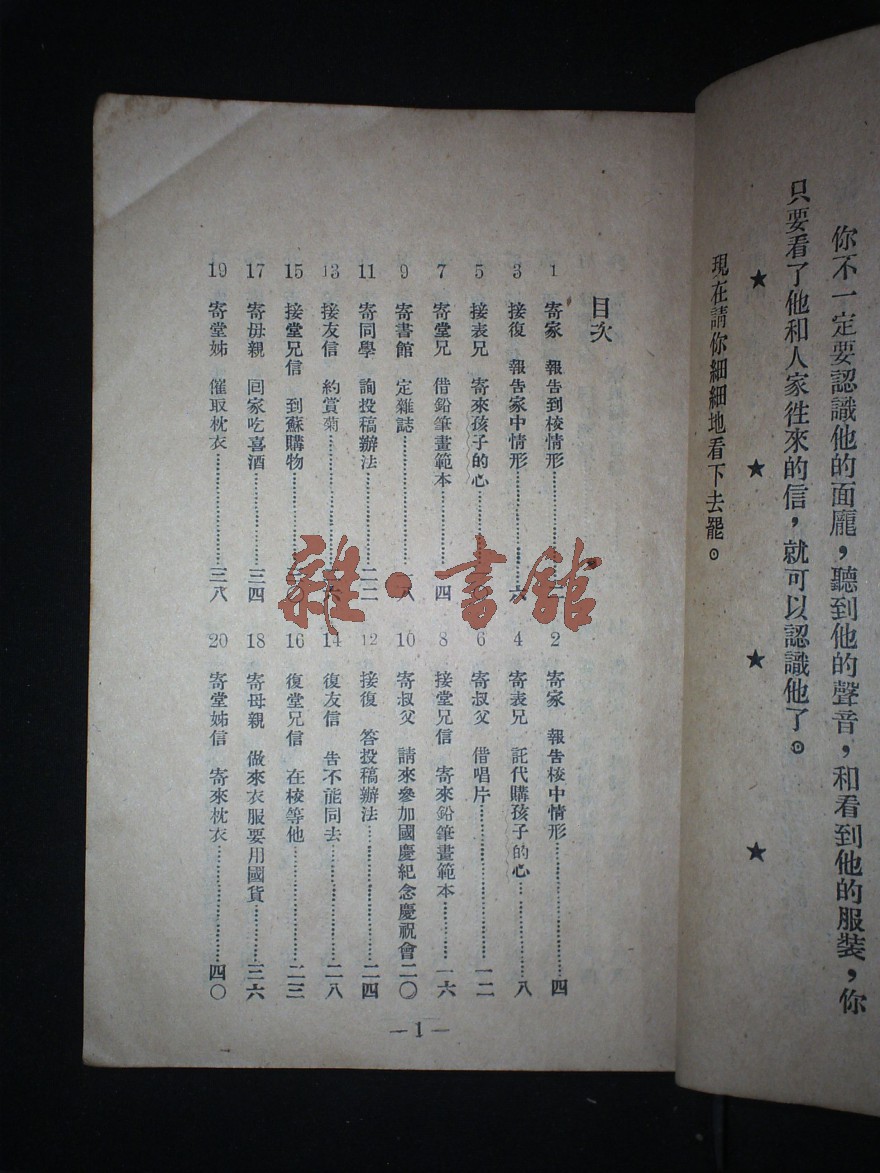 你不一定要認識他的面龐，聽到他的聲音，和看到他的服裝，你
只要看了他和人家徃來的信，就可以認識他了。
★ ★ ★ ★
現在請你細細地看下去罷。
目次
1 寄家 報告到校情形
2 寄家 報告校中情形…………四
3 接復 報告家中情形…………六
4 寄表兄 託代購孩子的心…………八
5 接表兄 寄來孩子的心…………
6 寄叔父 借唱片…………一二
7 寄堂兄 借鉛筆畫範本…………四
8 接堂兄信 寄來鉛筆畫範本…………一六
9 寄書館 定雜誌…………八
10 寄叔父 請來參加國慶紀念慶祝會二〇
11 寄同學 詢投稿辦法…………二二
12 接復 答投稿辦法…………二四
13 接友信 約賞菊…………六
14 復友信 告不能同去…………二八
15 接堂兄信 到蘇購物…………
16 復堂兄信 在校等他…………二三
17 寄母親 囘家吃喜酒…………三四
18 寄母親 做來衣服要用國貨…………三六
19 寄堂姊 催取枕衣…………三八
20 寄堂姊信 寄來枕衣…………四〇
—1—
雜·書館